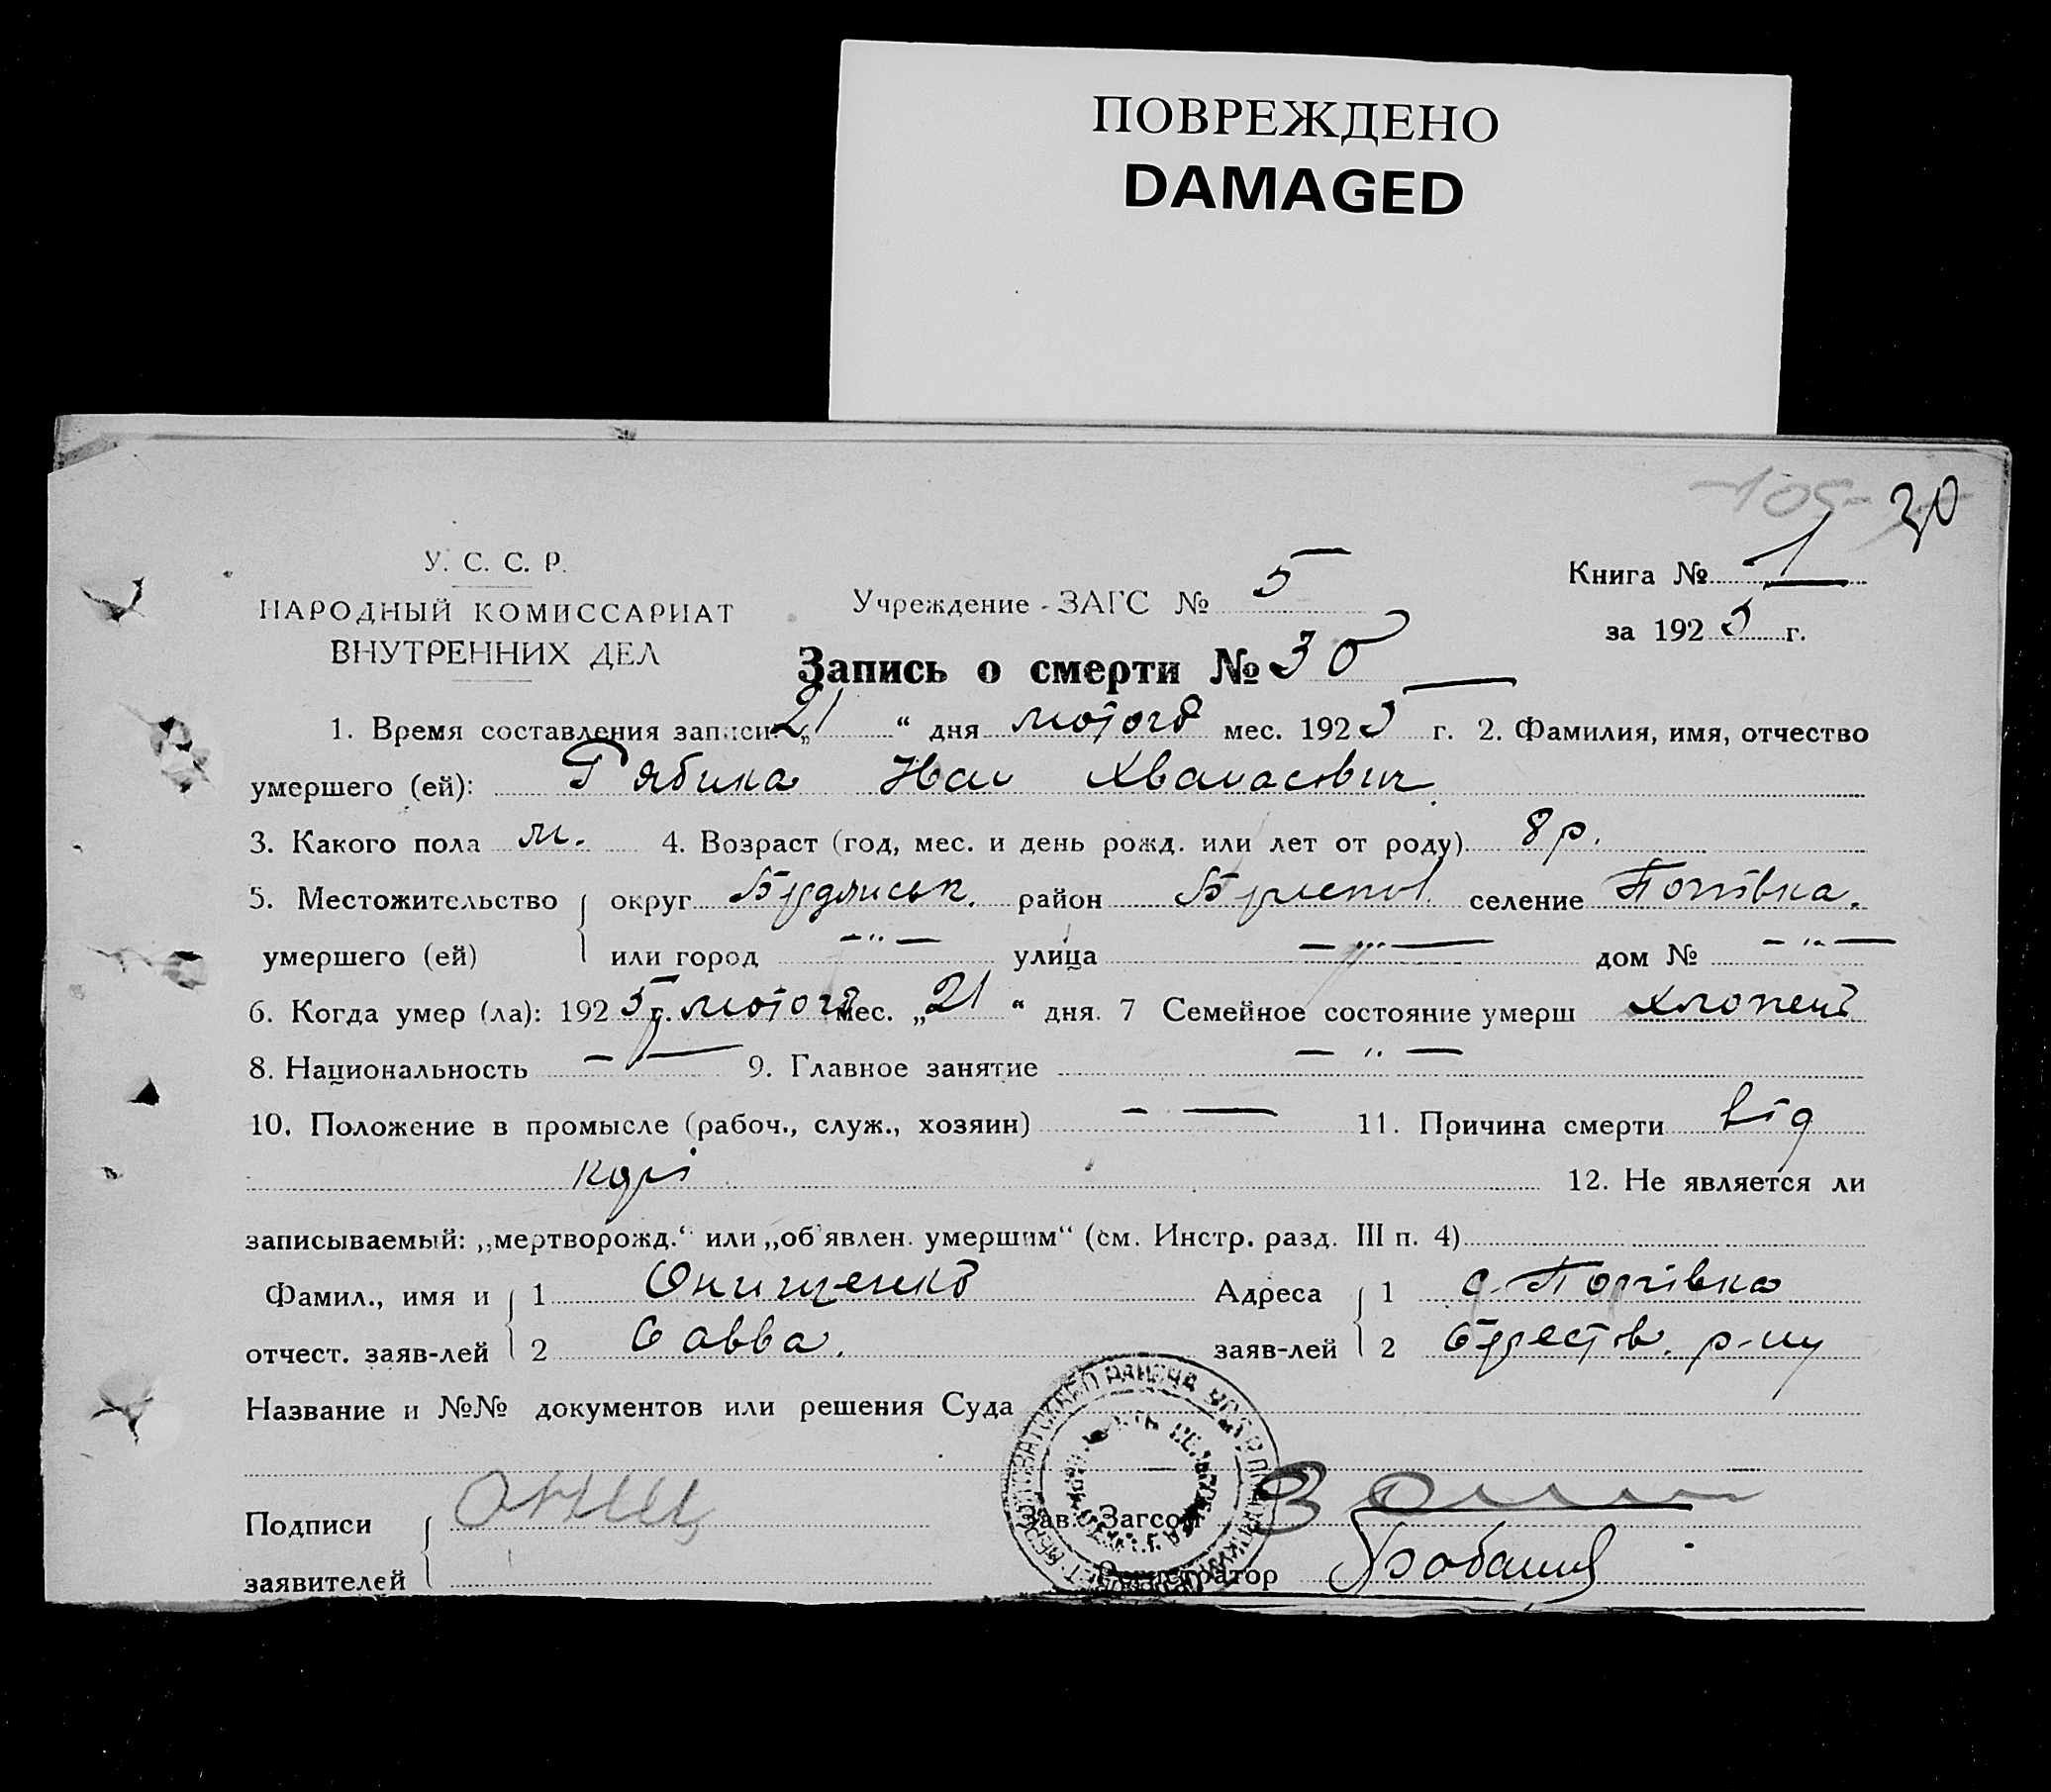 ПОВРЕЖДЕНО
DAMAGED
30
У. С. С. Р.
НАРОДНЫЙ КОМИССАРИАТ
ВНУТРЕННИХ ДЕЛ
Учреждение - ЗАГС № 5
Книга № 1
за 1925 г.
Запись о смерти № 30
1. Время составления записи: „21 “ дня лютого мес. 1925 г. 2. Фамилия, имя, отчество
умершего (ей): Рябика Иван Хванасович
3. Какого пола м. 4. Возраст (год, мес. и день рожд. или лет от роду) 8 р.
5. Местожительство округ район селение Попівка.
умершего (ей) или город — " — улица — " — дом № — " —
6. Когда умер (ла): 1925 г. лютого мес. „21 “ дня. 7 Семейное состояние умерш хлопець
8. Национальность — 9. Главное занятие — " —
10. Положение в промысле (рабоч., служ., хозяин) — — 11. Причина смерти від
корі 12. Не является ли
записываемый: „мертворожд.“ или „об'явлен. умершим“ (см. Инстр. разд. III п. 4)
Фамил., имя и 1 Онищенко Адреса 1 с. Попівка
отчест. заяв-лей 2 Савва. заяв-лей 2 р-ну
Название и №№ документов или решения Суда
Подписи Онищ Зав. Загсом
заявителей Регистратор